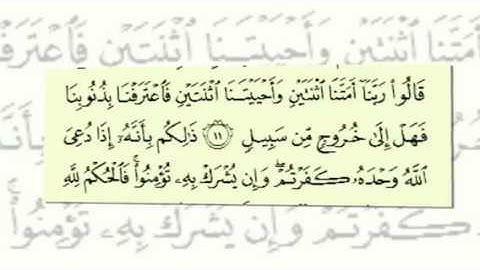 أَمَتَّنَا ٱثْنَتَيْنِ وَأَحْيَيْتَنَا ٱثْنَتَيْنِ فَٱعْتَرَفْنَا
قَالُوا۟ رَبَّنَآ أَمَتَّنَا ٱثْنَتَيْنِ وَأَحْيَيْتَنَا ٱثْنَتَيْنِ فَٱعْتَرَفْنَا بِذُنُوبِنَا
فَهَلْ إِلَىٰ خُرُوجٍ مِّن سَبِيلٍ ١١ ذَٰلِكُم بِأَنَّهُۥٓ إِذَا دُعِىَ
ٱللَّهُ وَحْدَهُۥ كَفَرْتُمْ ۖ وَإِن يُشْرَكْ بِهِۦ تُؤْمِنُوا۟ ۚ فَٱلْحُكْمُ لِلَّهِ
كَفَرْتُمْ وَإِن يُشْرَكْ بِهِۦ تُؤْمِنُوا۟ ۚ